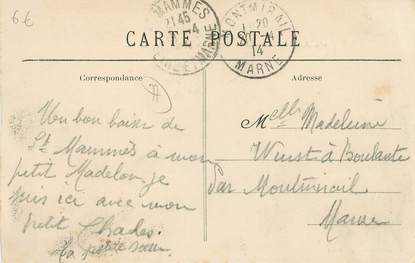 6€
MAMMES
21 45
SEINE ET MARNE
MONTMIRAIL
1 * 20
14
MARNE
CARTE POSTALE
Correspondance
Adresse
Un bon baiser de
St Mammès à mon
petit Madelon je
suis ici avec mon
petit Charles.
La petite sœur
Melle Madeleine
à
par Montmirail
Marne